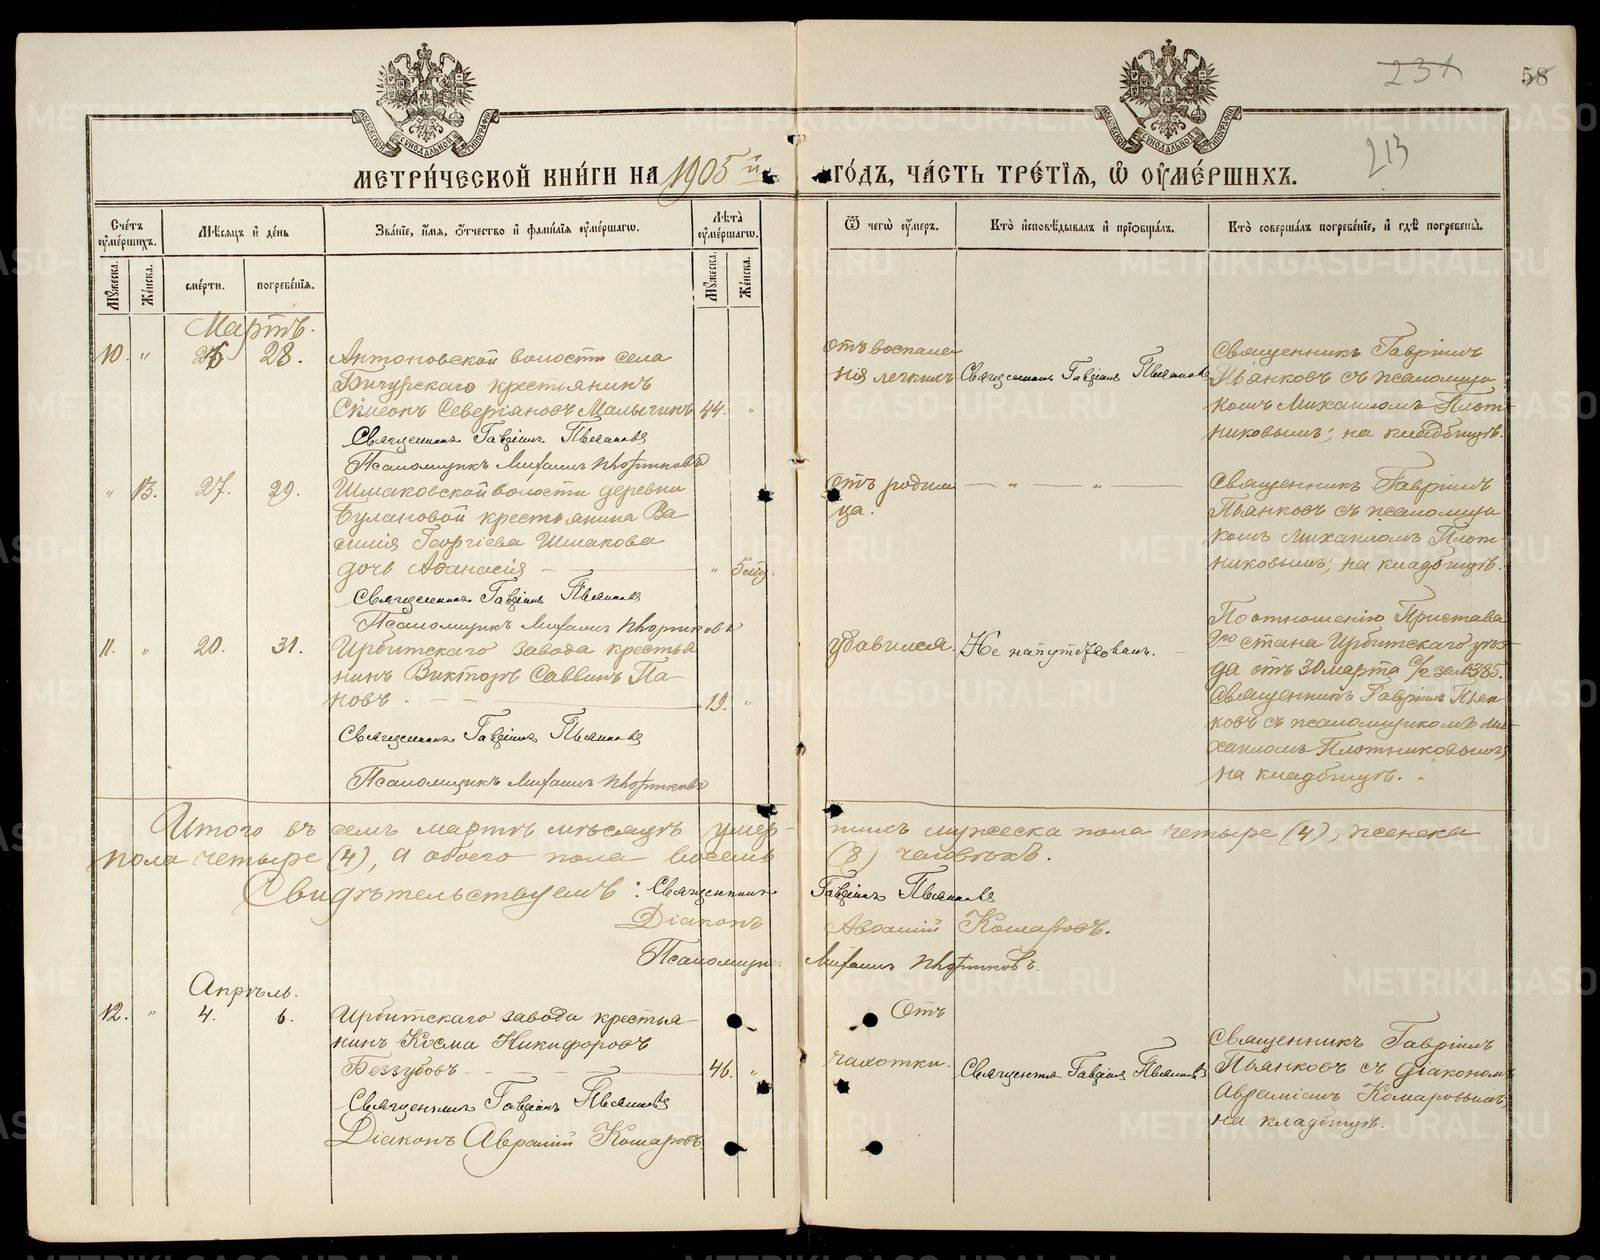 231
58
213
МОСКОВСКОЙ СѴНОДАЛЬНОЙ ТИПОГРАФІИ
МОСКОВСКОЙ СѴНОДАЛЬНОЙ ТИПОГРАФІИ
МЕТРИ́ЧЕСКОЙ КНИ́ГИ НА 1905й ГО́ДЪ, ЧА́СТЬ ТРЕ́ТІЯ, Ѿ ОУМЕ́РШИХЪ.
Сче́тъ оуме́ршихъ.
Мѣсяцъ и де́нь
Зва́ніе, и́мя, о́тчество и фами́лія оуме́ршагѡ.
Лѣ́та оуме́ршагѡ.
Ѿ чегѡ̀ оу́меръ.
Кто̀ и́сповѣдывалъ и пріобща́лъ.
Кто̀ соверша́лъ погребе́ніе, и гдѣ̀ погребены̀.
Мꙋ́жеска.
Же́нска.
сме́рти.
погребе́нія.
Мꙋ́жеска.
Же́нска.
Мартъ.
10. " 26 28. Антоновской волости села
Бичурскаго крестьянинъ
Сѵмеонъ Северіановъ Малыгинъ 44. "
Священникъ Гавріилъ Пьянковъ
Псаломщикъ Михаилъ Плотниковъ
отъ воспале
нія легкихъ
Священникъ Гавріилъ Пьянковъ
Священникъ Гавріилъ
Пьянковъ съ псаломщи
комъ Михаиломъ Плот-
никовымъ; на кладбищѣ.
" 13. 27. 29. Шмаковской волости деревни
Булановой крестьянина Ва
силія Георгіева Шмакова
дочь Аѳанасія — "
Священникъ Гавріилъ Пьянковъ
Псаломщикъ Михаилъ Плотниковъ
отъ родим
ца.
— " — " —
Священникъ Гавріилъ
Пьянковъ съ псаломщи
комъ Михаиломъ Плот-
никовымъ; на кладбищѣ.
11. " 20. 31. Ирбитскаго завода крестья
нинъ Викторъ Саввинъ Па-
новъ. — 19. "
Священникъ Гавріилъ Пьянковъ
Псаломщикъ Михаилъ Плотниковъ
удавился.
Не напутствованъ.
По отношенію Пристава
стана Ирбитскаго уѣз-
да отъ 30 марта с/г за № 385.
Священникъ Гавріилъ Пьян
ковъ съ псаломщикомъ Ми-
хаиломъ Плотниковымъ,
на кладбищѣ.
Итого въ семъ мартѣ мѣсяцѣ умер-шихъ мужеска пола четыре (4), женска
пола четыре (4), а обоего пола восемь (8) человѣкъ.
Свидѣтельствуемъ: Священникъ Гавріилъ Пьянковъ
Діаконъ Авраамій Комаровъ.
Псаломщикъ Михаилъ Плотниковъ.
Апрѣль.
12. " 4. 6. Ирбитскаго завода крестья-
нинъ Косма Никифоровъ
Беззубовъ — 46. "
Священникъ Гавріилъ Пьянковъ
Діаконъ Авраамій Комаровъ.
Отъ
чахотки.
Священникъ Гавріилъ Пьянковъ
Священникъ Гавріилъ
Пьянковъ съ діакономъ
Авраміемъ Комаровымъ,
на кладбищѣ.
METRIKI.GASO-URAL.RU